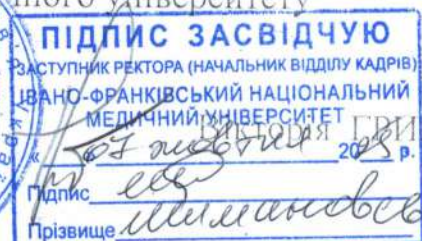 ного університету
ПІДПИС ЗАСВІДЧУЮ
ЗАСТУПНИК РЕКТОРА (НАЧАЛЬНИК ВІДДІЛУ КАДРІВ)
ІВАНО-ФРАНКІВСЬКИЙ НАЦІОНАЛЬНИЙ
МЕДИЧНИЙ УНІВЕРСИТЕТ
Вікторія ГРИ
«07 жовтня 20 р.
Підпис
Прізвище